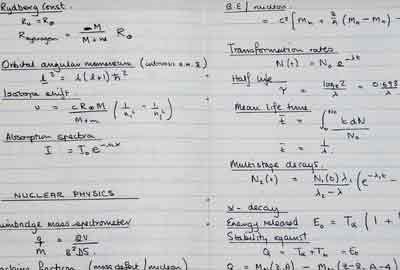 Rydberg Const.
R∞ = R∞
R_hydrogen = M / (M + m) R∞
Orbital angular momentum
l² = l(l+1)ħ²
Isotope shift.
ν = cR∞M / (M+m) (1/n₁² - 1/n₂²)
Absorption spectra
I = I₀e
NUCLEAR PHYSICS
mass spectrometer
q/m = 2V / B²
fraction (mass defect / nucleon)
B.E / nucleon
= c² [Mn + Z/A (MH - Mn) -
Transformation rates
N(t) = N₀ e^-λt
Half life
τ = loge2 / λ = 0.693 / λ
Mean life time
t̄ = ∫ t dN / N₀
t̄ = 1/λ
Multistage decays.
N₂(t) = N₁(0) λ₁ / (λ₂ - λ₁) (e^-λ₁t -
α - decay
Energy released E₀ = Tα (1 +
Stability against
Q = Tα + Tb = E₀
Q = (Z,A) - (Z-2, A-4)